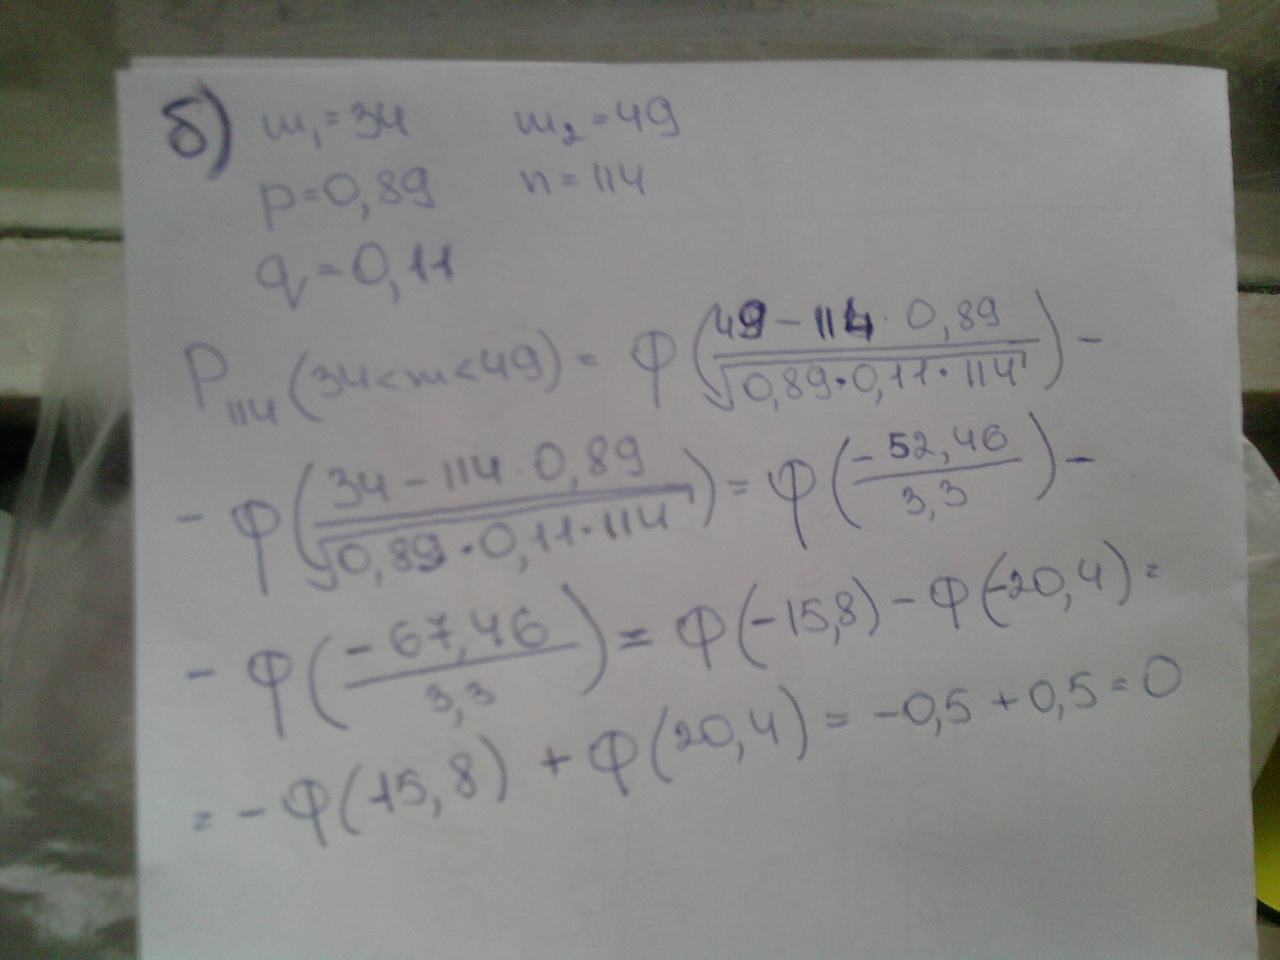 б) m₁=34 m₂=49
p=0,89 n=114
q=0,11
P₁₁₄(34<m<49)= φ((49-114·0,89)/√(0,89·0,11·114))-
-φ((34-114·0,89)/√(0,89·0,11·114))=φ((-52,46)/3,3)-
-φ((-67,46)/3,3)=φ(-15,8)-φ(-20,4)=
=-φ(15,8)+φ(20,4)=-0,5+0,5=0